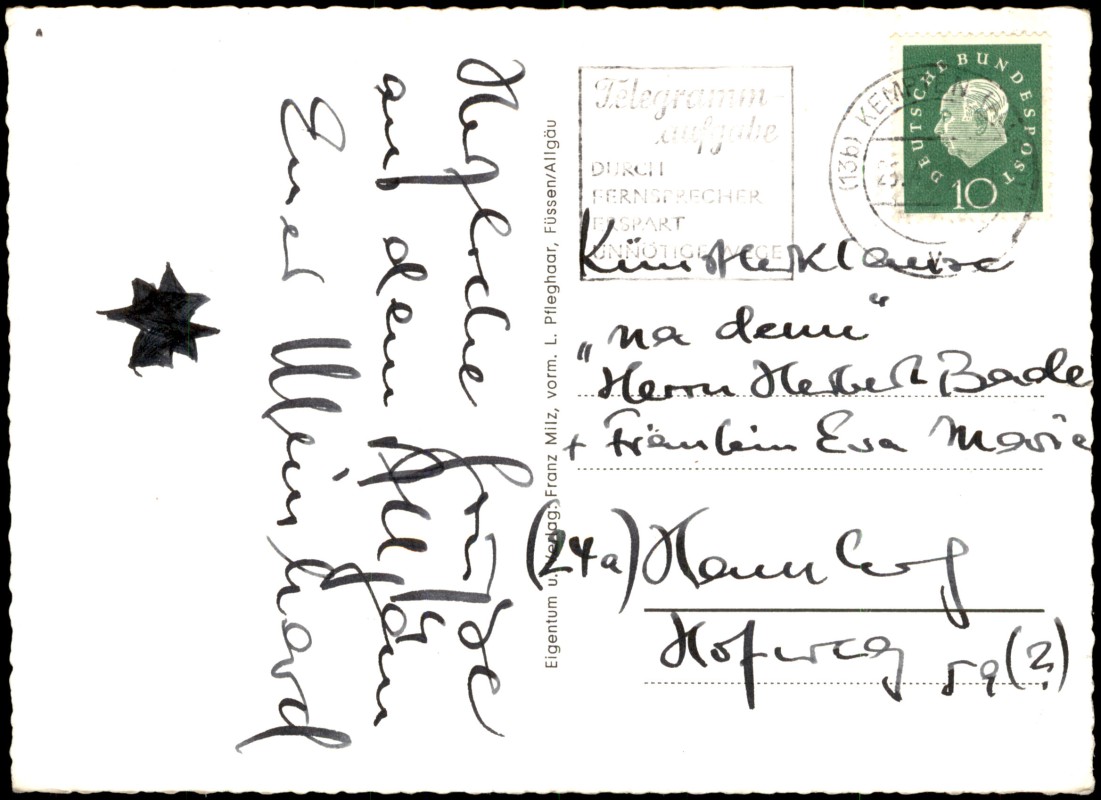 Herzliche Grüße
aus dem Allgäu
Euer Meinhard
Eigentum u. Verlag: Franz Milz, vorm. L. Pfleghaar, Füssen/Allgäu
Telegramm-
aufgabe
DURCH
FERNSPRECHER
ERSPART
UNNÖTIGE WEGE
(13b) KEMPTEN
DEUTSCHE BUNDESPOST
10
Künstlerklause
„na denn“
Herrn Herbert Bade
+ Fräulein Eva Marie
(24a) Hamburg
Hofweg 59 (?)